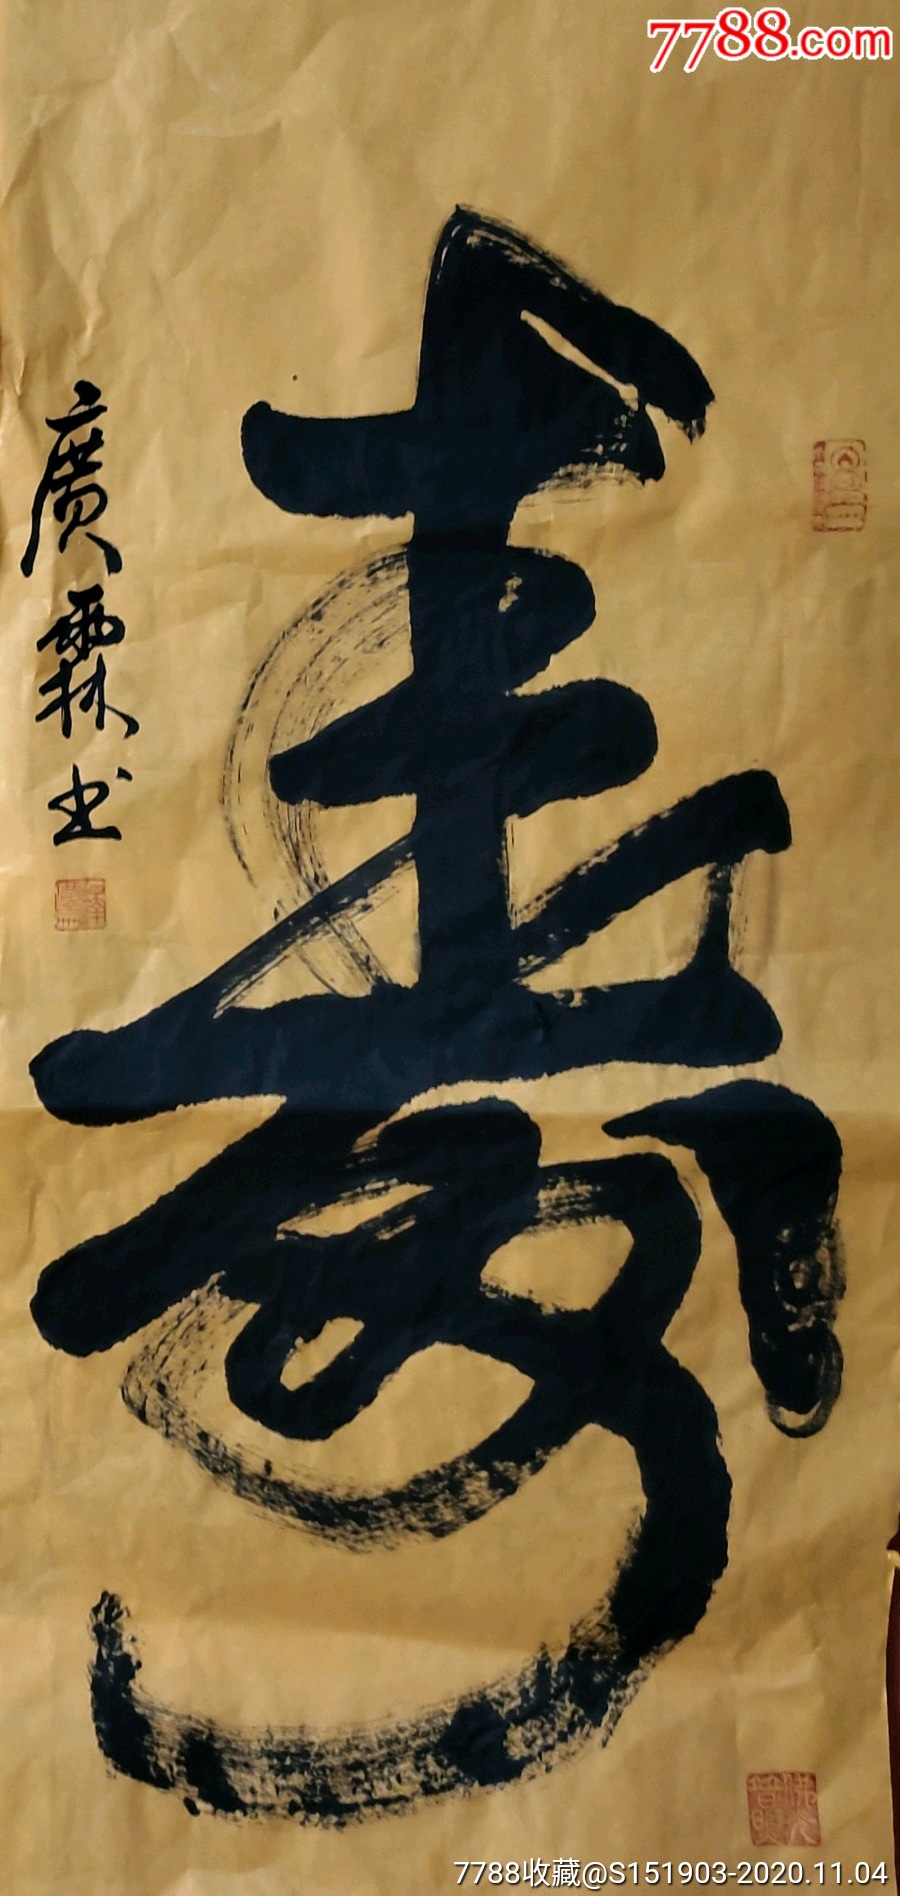 7788.com
壽
廣霖书
7788收藏@S151903-2020.11.04